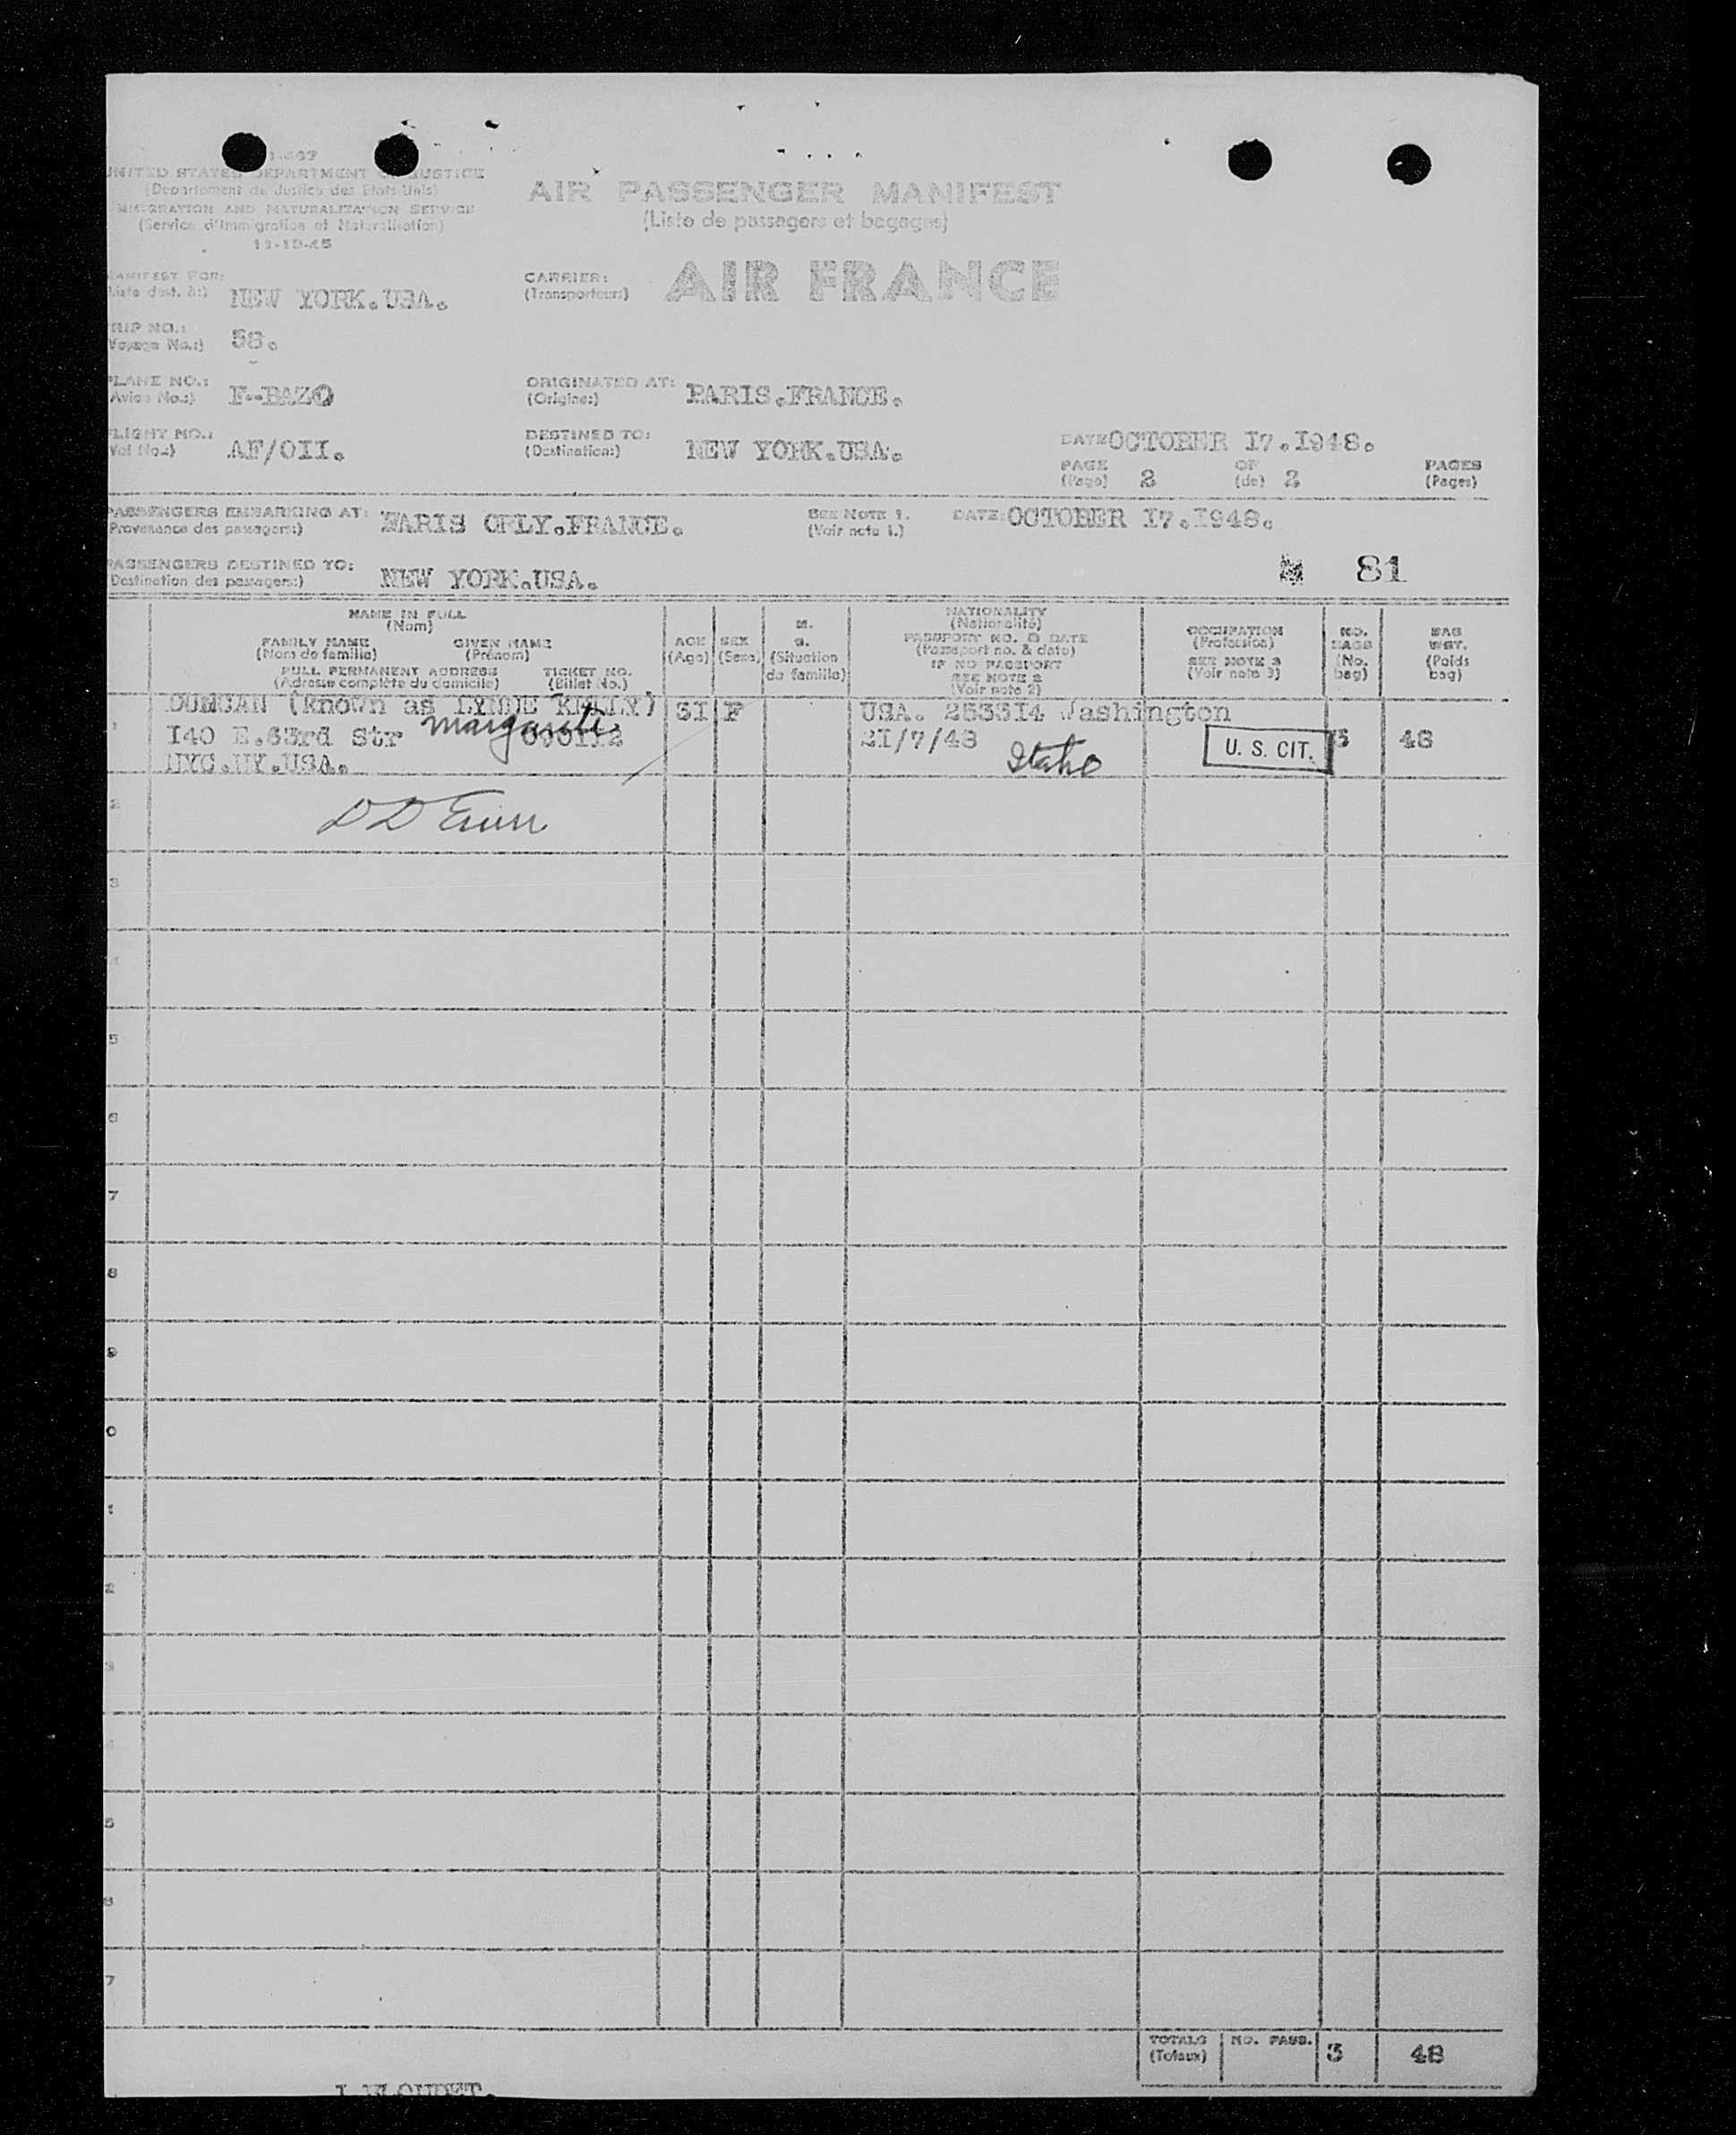 UNITED STATES DEPARTMENT OF JUSTICE
(Departement de Justice des Etats-Unis)
IMMIGRATION AND NATURALIZATION SERVICE
(Service d'Immigration et Naturalisation)
11-15-45
AIR PASSENGER MANIFEST
(Liste de passagers et bagages)
MANIFEST FOR:
(Liste dest. à:) NEW YORK.USA.
CARRIER:
(Transporteur:) AIR FRANCE
TRIP NO.:
(Voyage No.:) 58.
PLANE NO.:
(Avion No.:) F-BAZO
ORIGINATED AT:
(Origine:) PARIS.FRANCE.
FLIGHT NO.:
(Vol No.:) AF/OII.
DESTINED TO:
(Destination:) NEW YORK.USA.
DATE OCTOBER I7.I948.
PAGE 2 OF 2 PAGES
(Page) (de) (Pages)
PASSENGERS EMBARKING AT: PARIS ORLY.FRANCE. SEE NOTE 1. DATE: OCTOBER I7.I948.
(Provenance des passagers:) (Voir note 1.)
PASSENGERS DESTINED TO: NEW YORK.USA. 81
(Destination des passagers:)
NAME IN FULL
(Nom)
FAMILY NAME GIVEN NAME
(Nom de famille) (Prénom)
FULL PERMANENT ADDRESS TICKET NO.
(Adresse complète du domicile) (Billet No.)
AGE
(Age)
SEX
(Sexe)
M.
S.
(Situation
de famille)
NATIONALITY
(Nationalité)
PASSPORT NO. & DATE
(Passeport no. & date)
IF NO PASSPORT
SEE NOTE 2
(Voir note 2)
OCCUPATION
(Profession)
SEE NOTE 3
(Voir note 3)
NO.
BAGS
(No.
bag)
BAG
WGT.
(Poids
bag)
DUNCAN (known as LYNNE KELLY) 3I F USA. 253314 Washington
I40 E.63rd Str Margarete 21/7/48 Idaho U. S. CIT. 3 48
NYC.NY.USA.
2
3
4
5
6
7
8
9
0
1
2
3
4
5
6
7
TOTALS NO. PASS. 3 48
(Totaux)